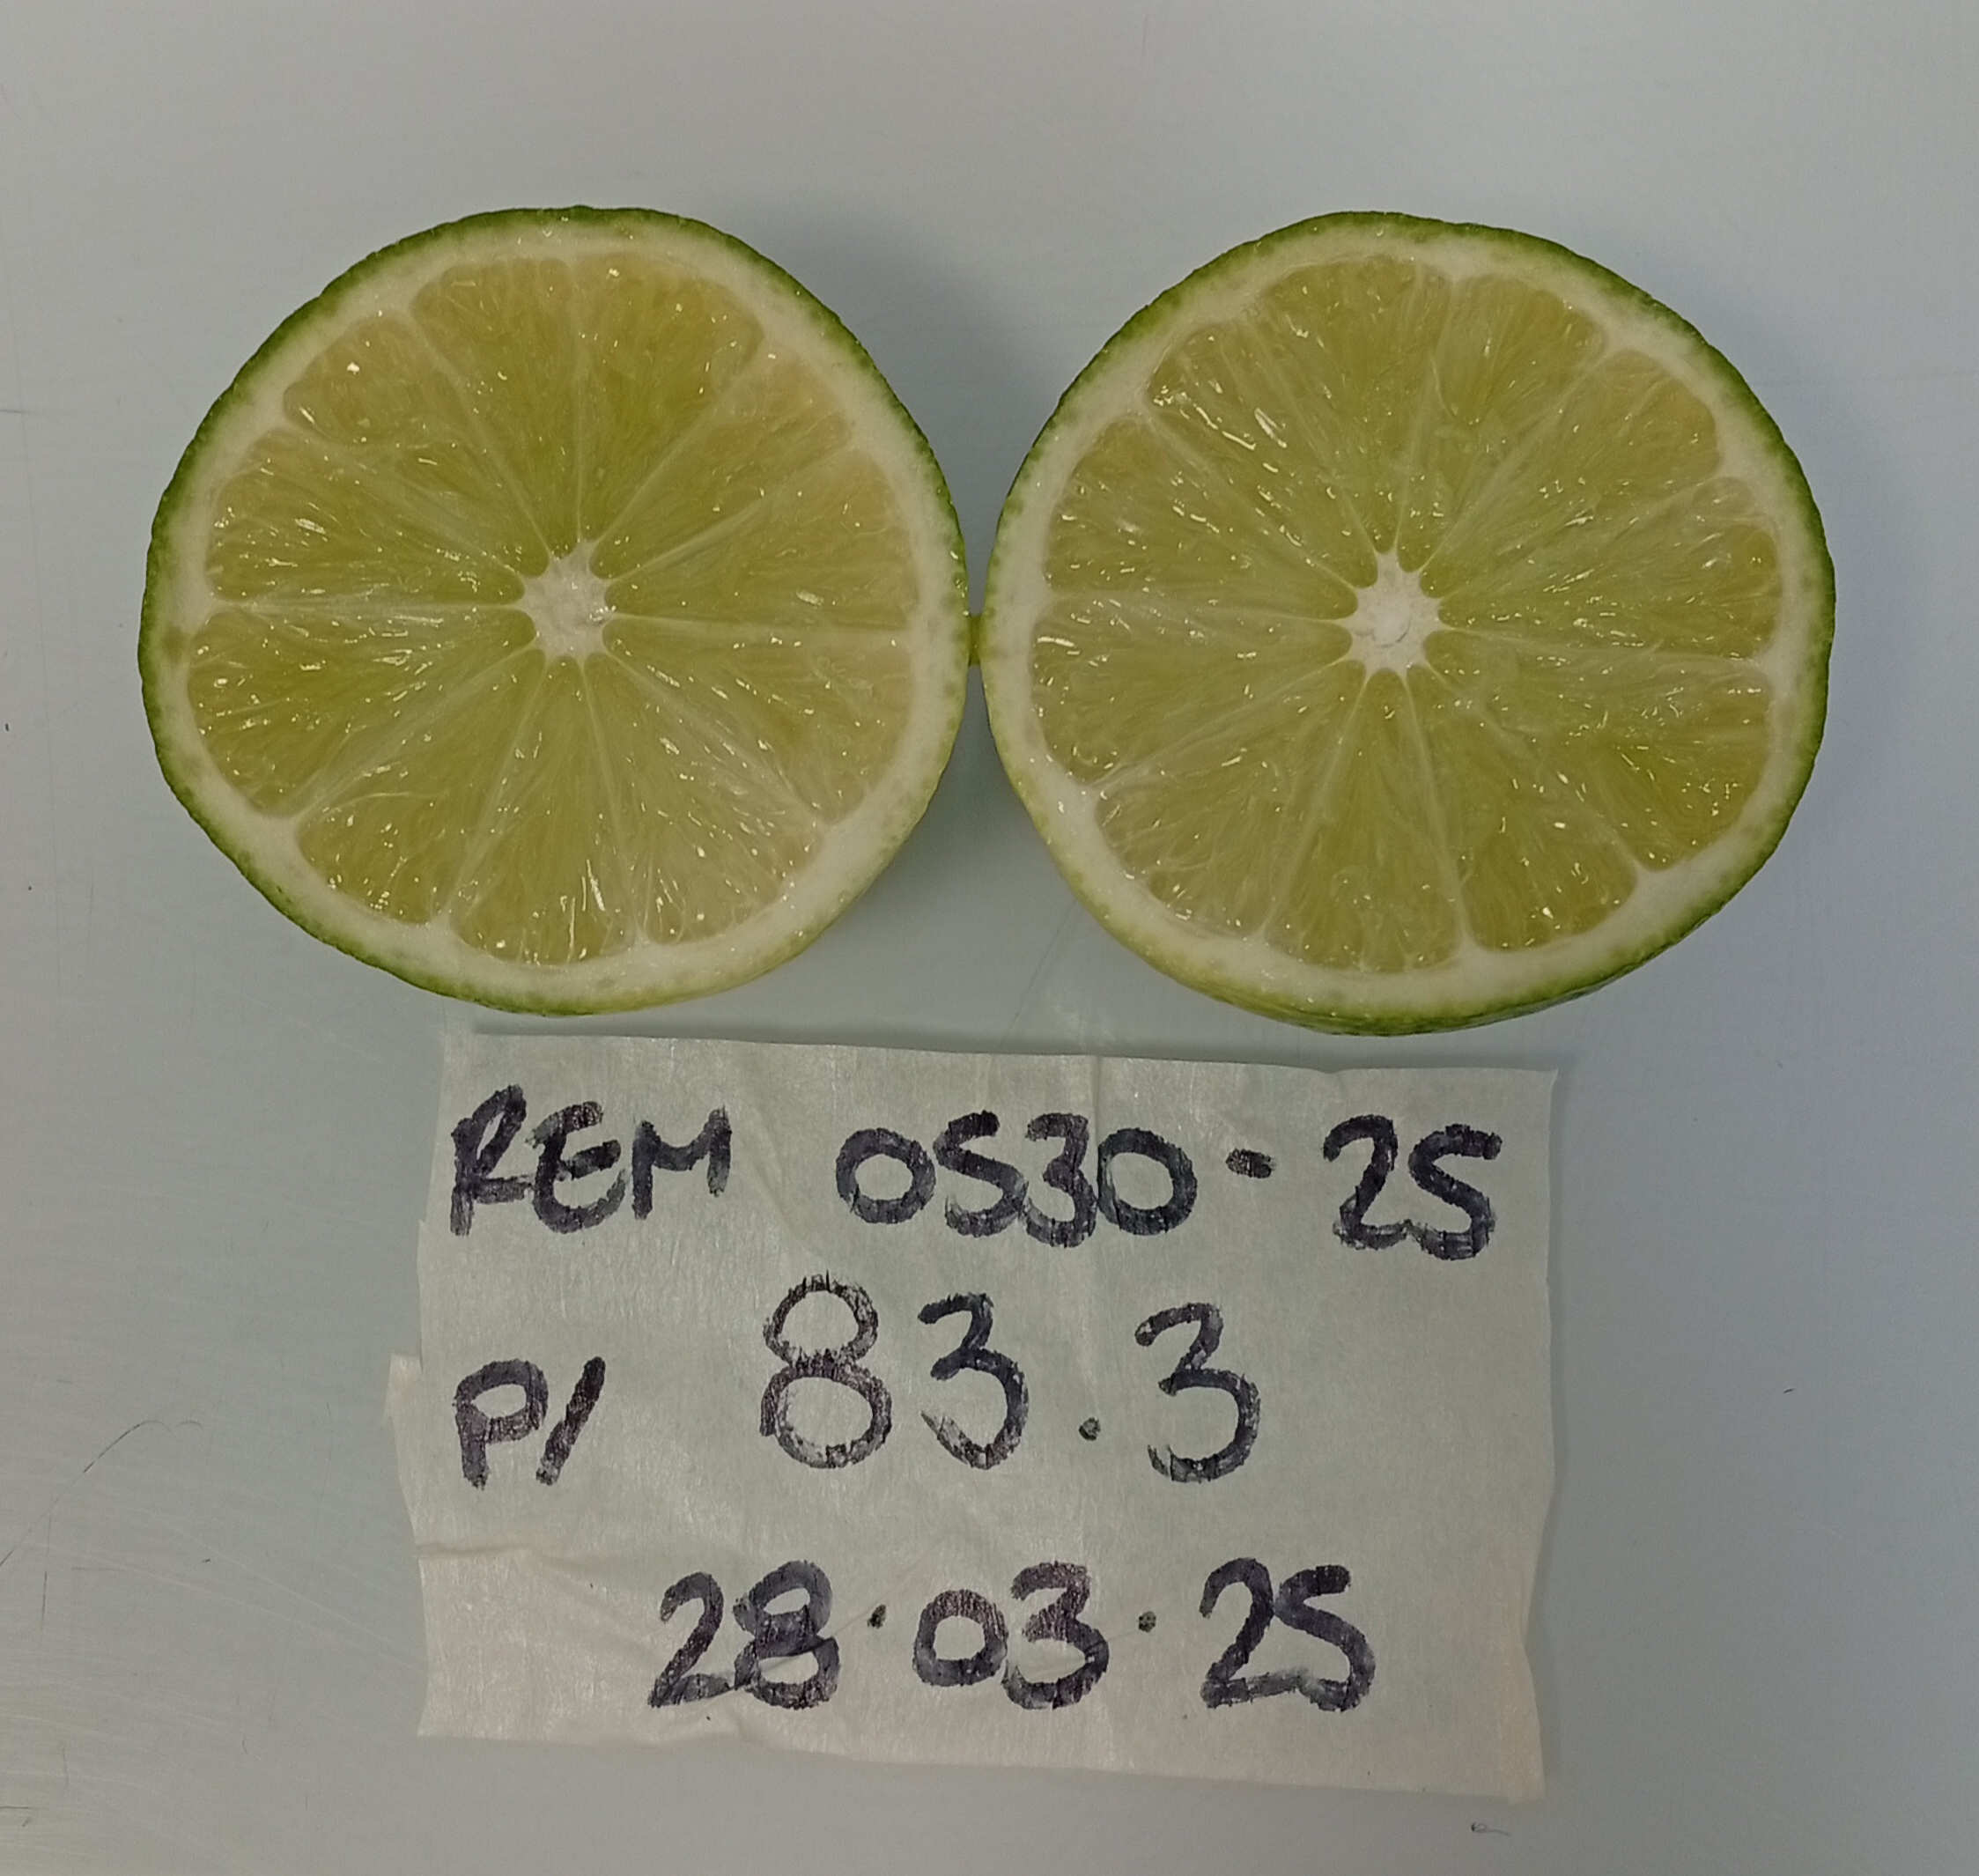 REM 0530-25
P/ 83.3
28.03.25